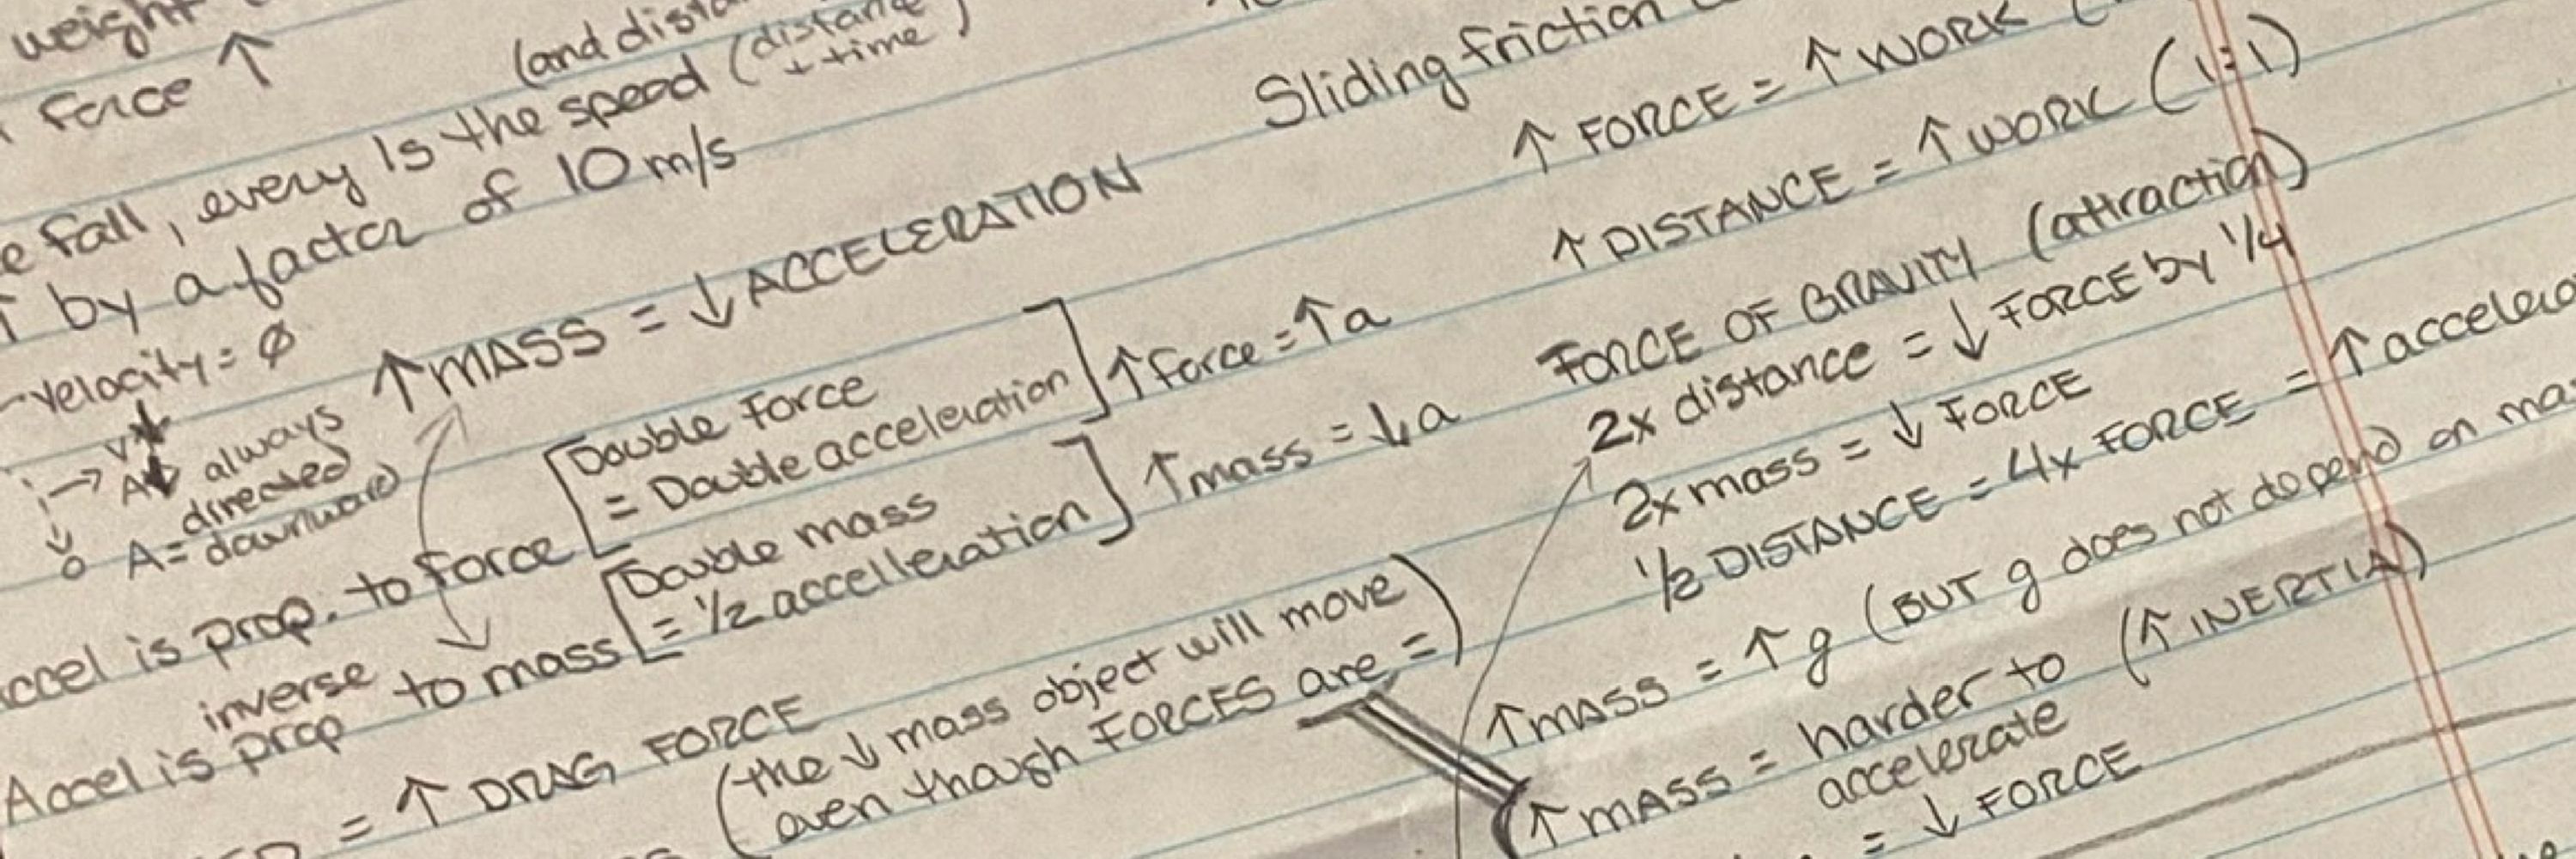 weight
force ↑
(and dist
e fall, every 1s the speed (distan
+ time)
↑ by a factor of 10 m/s
- velocity = Ø
V
A always
directed
A = downward
↑ MASS = ↓ ACCELERATION
ccel is prop. to force [Double Force
= Double acceleration] ↑ force = ↑ a
inverse
Accel is prop to mass [Double mass
= 1/2 accelleration] ↑ mass = ↓ a
= ↑ DRAG FORCE
(the ↓ mass object will move
even though FORCES are =)
Sliding friction
↑ FORCE = ↑ WORK (
↑ DISTANCE = ↑ WORK (1:1)
FORCE OF GRAVITY (attraction)
2x distance = ↓ FORCE by 1/4
2x mass = ↓ FORCE
1/2 DISTANCE = 4x FORCE = ↑ accelera
↑ MASS = ↑ g (BUT g does not depend on mas
↑ MASS = harder to (↑ INERTIA)
accelerate
= ↓ FORCE